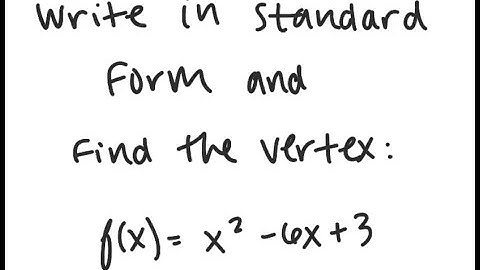 Write in Standard
Form and
Find the vertex:
f(x) = x² - 6x + 3